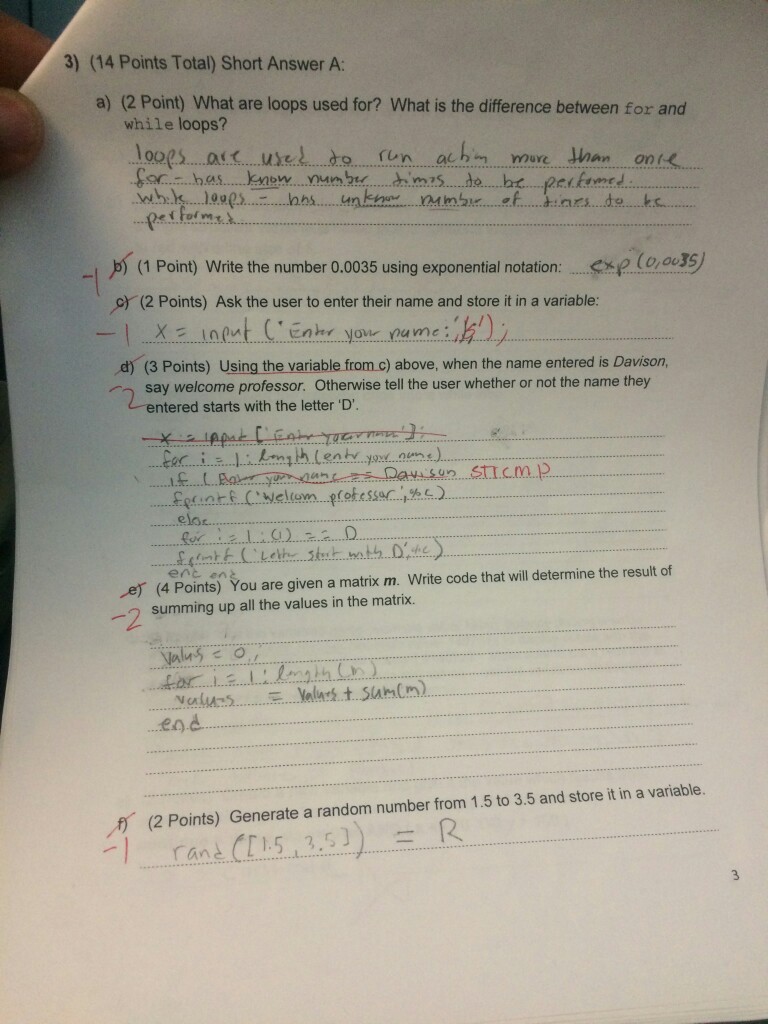 3) (14 Points Total) Short Answer A:
a) (2 Point) What are loops used for? What is the difference between for and
while loops?
loops are used to run action more than once
for - has know number times to be perfomed.
while loops - has unknow number of times to be
performed
-1 b) (1 Point) Write the number 0.0035 using exponential notation: exp(0,0035)
c) (2 Points) Ask the user to enter their name and store it in a variable:
-1 X = input ('Enter your name:','s');
d) (3 Points) Using the variable from c) above, when the name entered is Davison,
-2 say welcome professor. Otherwise tell the user whether or not the name they
entered starts with the letter 'D'.
x = input ['Enter your name'];
for i = 1:length(entr your name)
if ( your name == Davison strcmp
fprintf ('Welcom professor',%c)
else
for i = 1:(1) == D
fprintf ('Letter start with D',%c)
end end
e) (4 Points) You are given a matrix m. Write code that will determine the result of
-2 summing up all the values in the matrix.
Values = 0;
for i = 1:length(m)
values = Values + sum(m)
end
f) (2 Points) Generate a random number from 1.5 to 3.5 and store it in a variable.
-1 rand([1.5,3.5]) = R
3